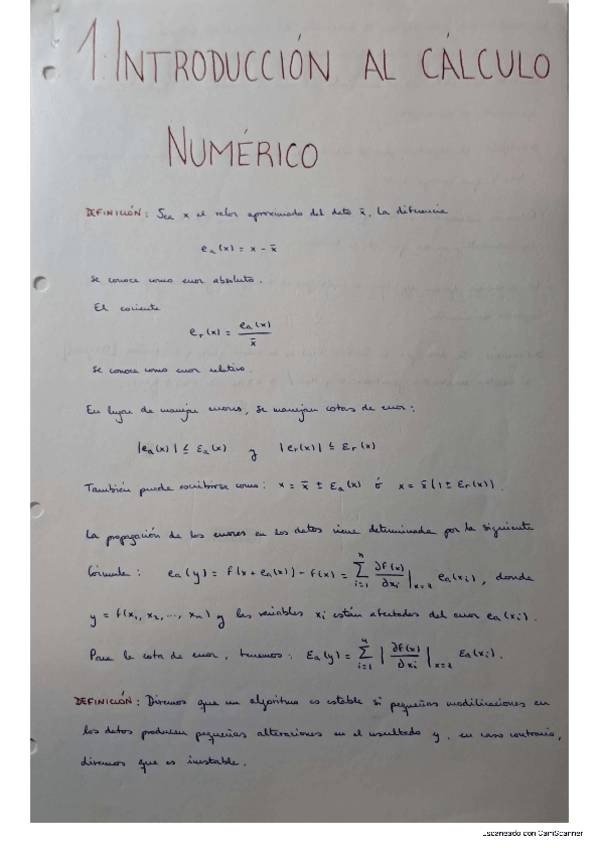 1. INTRODUCCIÓN AL CÁLCULO
NUMÉRICO
DEFINICIÓN: Sea x el valor aproximado del dato x̄. La diferencia
eₐ(x) = x - x̄
se conoce como error absoluto.
El cociente
eᵣ(x) = eₐ(x) / x̄
se conoce como error relativo.
En lugar de manejar errores, se manejan cotas de error:
|eₐ(x)| ≤ Eₐ(x) y |eᵣ(x)| ≤ Eᵣ(x)
También puede escribirse como: x = x̄ ± Eₐ(x) ó x = x̄(1 ± Eᵣ(x)).
La propagación de los errores en los datos viene determinada por la siguiente
fórmula: eₐ(y) = f(x + eₐ(x)) - f(x) = Σᵢ₌₁ⁿ ∂f(x)/∂xᵢ |ₓ₌ₓ̄ eₐ(xᵢ), donde
y = f(x₁, x₂, ..., xₙ) y las variables xᵢ están afectadas del error eₐ(xᵢ).
Para la cota de error, tenemos: Eₐ(y) = Σᵢ₌₁ⁿ |∂f(x)/∂xᵢ|ₓ₌ₓ̄ Eₐ(xᵢ).
DEFINICIÓN: Diremos que un algoritmo es estable si pequeñas modificaciones en
los datos producen pequeñas alteraciones en el resultado y, en caso contrario,
diremos que es inestable.
Escaneado con CamScanner